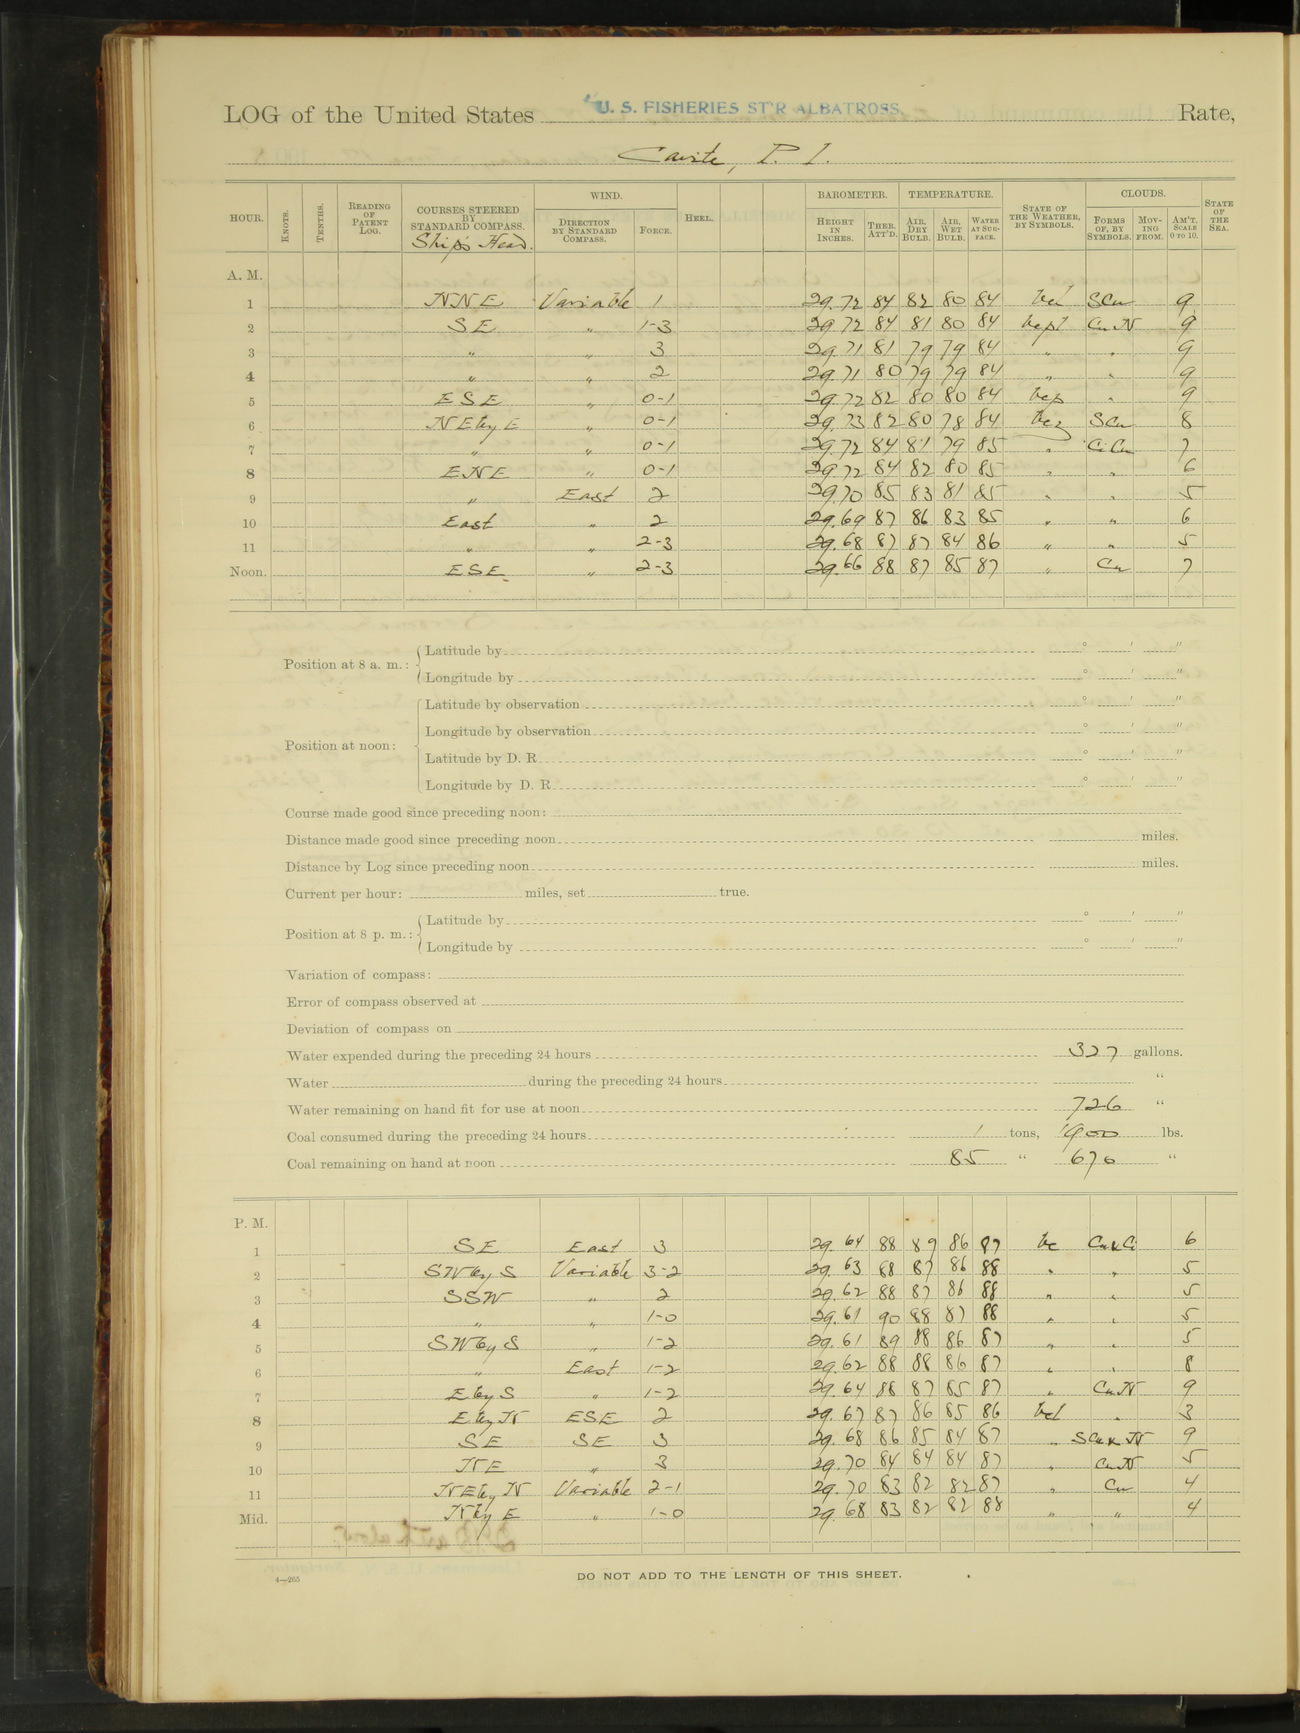 LOG of the United States U. S. FISHERIES ST'R ALBATROSS, Rate,
Cavite, P. I.
HOUR. KNOTS. TENTHS. READING OF PATENT LOG. COURSES STEERED BY STANDARD COMPASS. Ship's Head. WIND. DIRECTION BY STANDARD COMPASS. FORCE. HEEL. BAROMETER. HEIGHT IN INCHES. THER. ATT'D. TEMPERATURE. AIR, DRY BULB. AIR, WET BULB. WATER AT SURFACE. STATE OF THE WEATHER, BY SYMBOLS. CLOUDS. FORMS OF, BY SYMBOLS. MOVING FROM. AM'T, SCALE 0 TO 10. STATE OF THE SEA.
A. M.
1 NNE Variable 1 29.72 84 82 80 84 bcl SCu 9
2 SE " 1-3 29.72 84 81 80 84 bcpl CuN 9
3 " " 3 29.71 81 79 79 84 " " 9
4 " " 2 29.71 80 79 79 84 " " 9
5 ESE " 0-1 29.72 82 80 80 84 bcp " 9
6 NEbyE " 0-1 29.73 82 80 78 84 bcz SCu 8
7 " " 0-1 29.72 84 81 79 85 " CiCu 7
8 ENE " 0-1 29.72 84 82 80 85 " " 6
9 " East 2 29.70 85 83 81 85 " " 5
10 East " 2 29.69 87 86 83 85 " " 6
11 " " 2-3 29.68 87 87 84 86 " " 5
Noon. ESE " 2-3 29.66 88 87 85 87 " Cu 7
Position at 8 a. m.: Latitude by ° ' "
Longitude by ° ' "
Position at noon: Latitude by observation ° ' "
Longitude by observation ° ' "
Latitude by D. R. ° ' "
Longitude by D. R. ° ' "
Course made good since preceding noon:
Distance made good since preceding noon miles.
Distance by Log since preceding noon miles.
Current per hour: miles, set true.
Position at 8 p. m.: Latitude by ° ' "
Longitude by ° ' "
Variation of compass:
Error of compass observed at
Deviation of compass on
Water expended during the preceding 24 hours 327 gallons.
Water during the preceding 24 hours "
Water remaining on hand fit for use at noon 726 "
Coal consumed during the preceding 24 hours 1 tons, 1900 lbs.
Coal remaining on hand at noon 85 " 670 "
P. M.
1 SE East 3 29.64 88 89 86 87 bc Cu&Ci 6
2 SWbyS Variable 3-2 29.63 88 87 86 88 " " 5
3 SSW " 2 29.62 88 87 86 88 " " 5
4 " " 1-0 29.61 90 88 87 88 " " 5
5 SWbyS " 1-2 29.61 89 88 86 87 " " 5
6 " East 1-2 29.62 88 88 86 87 " " 8
7 EbyS " 1-2 29.64 88 87 85 87 " CuN 9
8 EbyN ESE 2 29.67 87 86 85 86 bcl " 3
9 SE SE 3 29.68 86 85 84 87 " SCu&N 9
10 NE " 3 29.70 84 84 84 87 " CuN 5
11 NEbyN Variable 2-1 29.70 83 82 82 87 " Cu 4
Mid. NbyE " 1-0 29.68 83 82 82 88 " " 4
4—265
DO NOT ADD TO THE LENGTH OF THIS SHEET.